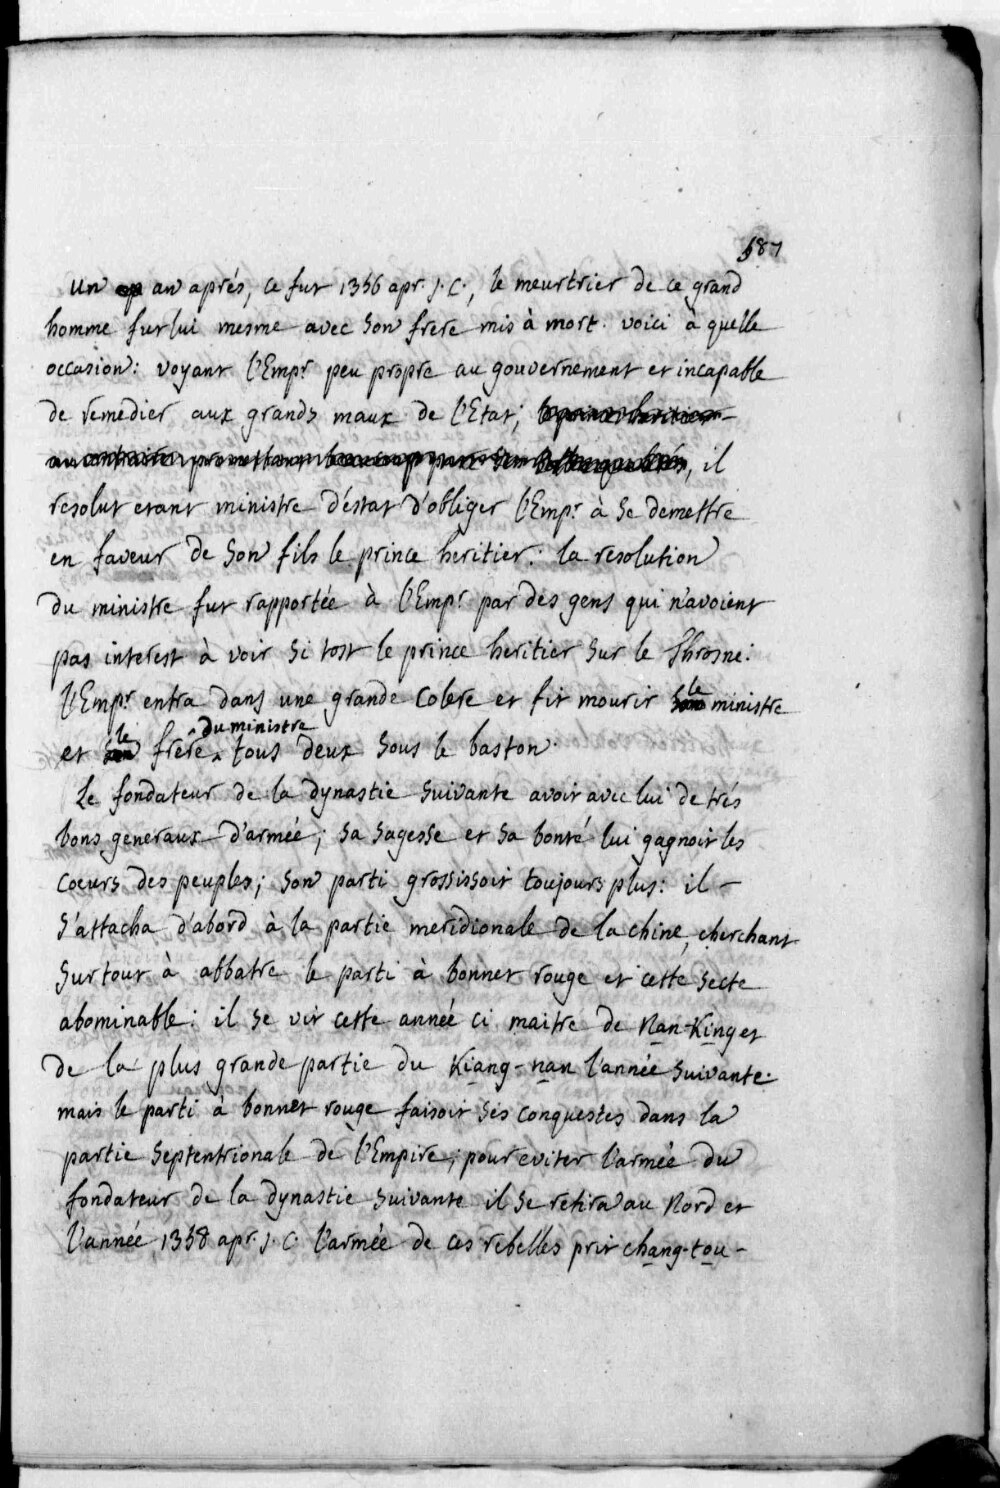 587
un an aprés, ce fut 1356 apr. J. C., le meurtrier de ce grand
homme fut lui mesme avec son frere mis à mort. voici à quelle
occasion: voyant l'Empr peu propre au gouvernement et incapable
de remedier aux grands maux de l'Etat; le prince heritier
au contraire promettant beaucoup par ses, il
resolut etant ministre d'éstat d'obliger l'Empr à se demettre
en faveur de son fils le prince heritier: la resolution
du ministre fut rapportée à l'Empr par des gens qui n'avoient
pas interest à voir si tost le prince heritier sur le throsne:
l'Empr entra dans une grande colere et fit mourir le ministre
et le frere du ministre tous deux sous le baston.
Le fondateur de la dynastie suivante avoit avec lui de trés
bons generaux d'armée; sa sagesse et sa bonté lui gagnoit les
coeurs des peuples; son parti grossissoit toujours plus: il
s'attacha d'abord à la partie meridionale de la chine, cherchant
surtout à abbatre le parti à bonnet rouge et cette secte
abominable: il se vit cette année ci maitre de Nan-King et
de la plus grande partie du Kiang-nan l'année suivante.
mais le parti à bonnet rouge faisoit ses conquestes dans la
partie septentrionale de l'Empire; pour eviter l'armée du
fondateur de la dynastie suivante il se retira au Nord et
l'année 1358 apr. J. C. l'armée de ces rebelles prit chang-tou-